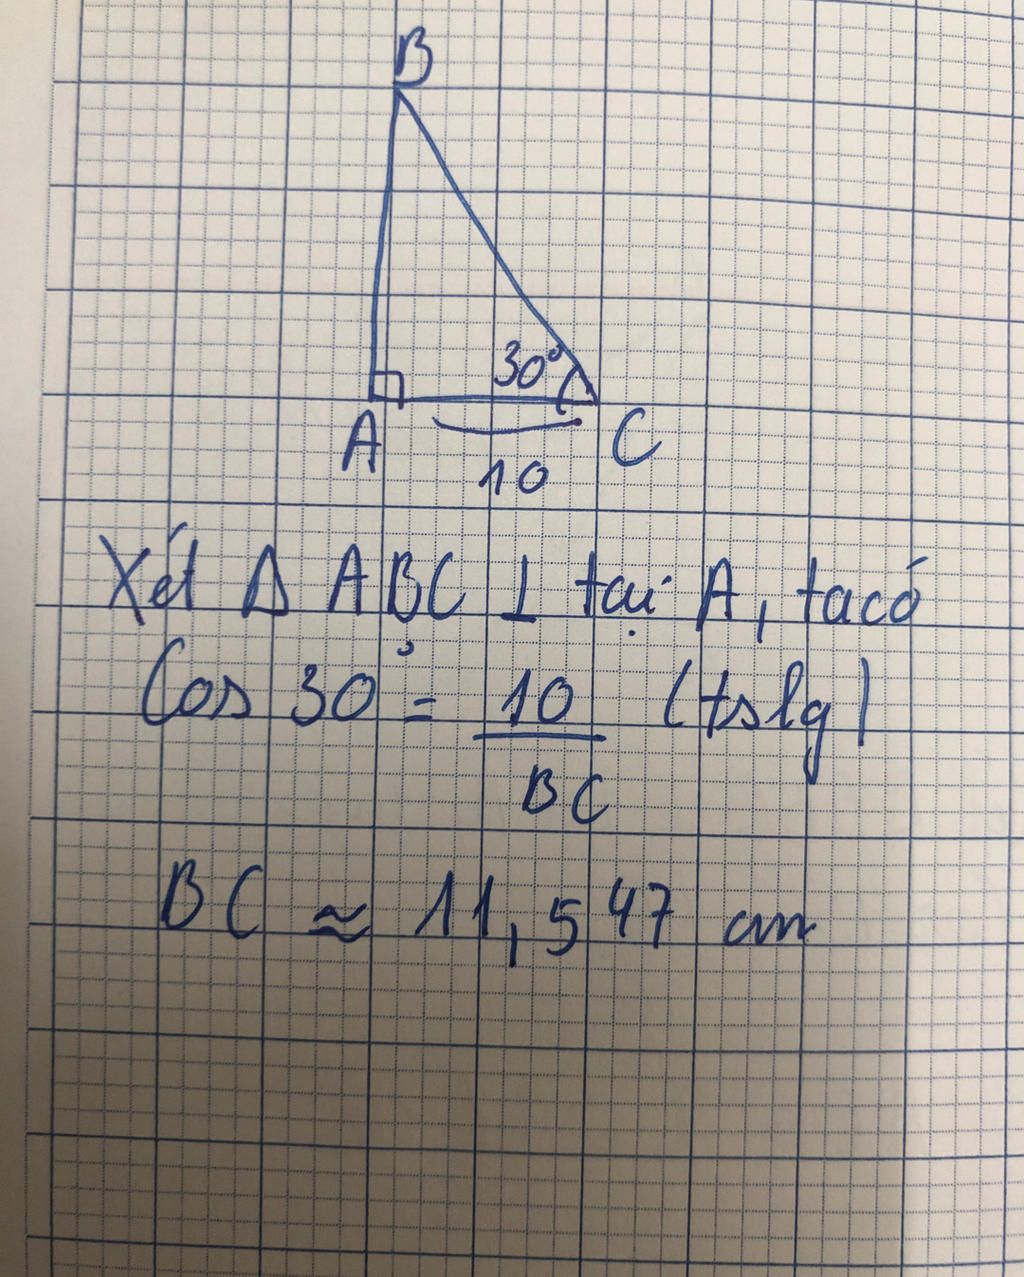 B
30°
A
C
10
Xét Δ ABC ⊥ tại A, ta có
Cos 30° = 10/BC (tslg)
BC ≈ 11,547 cm